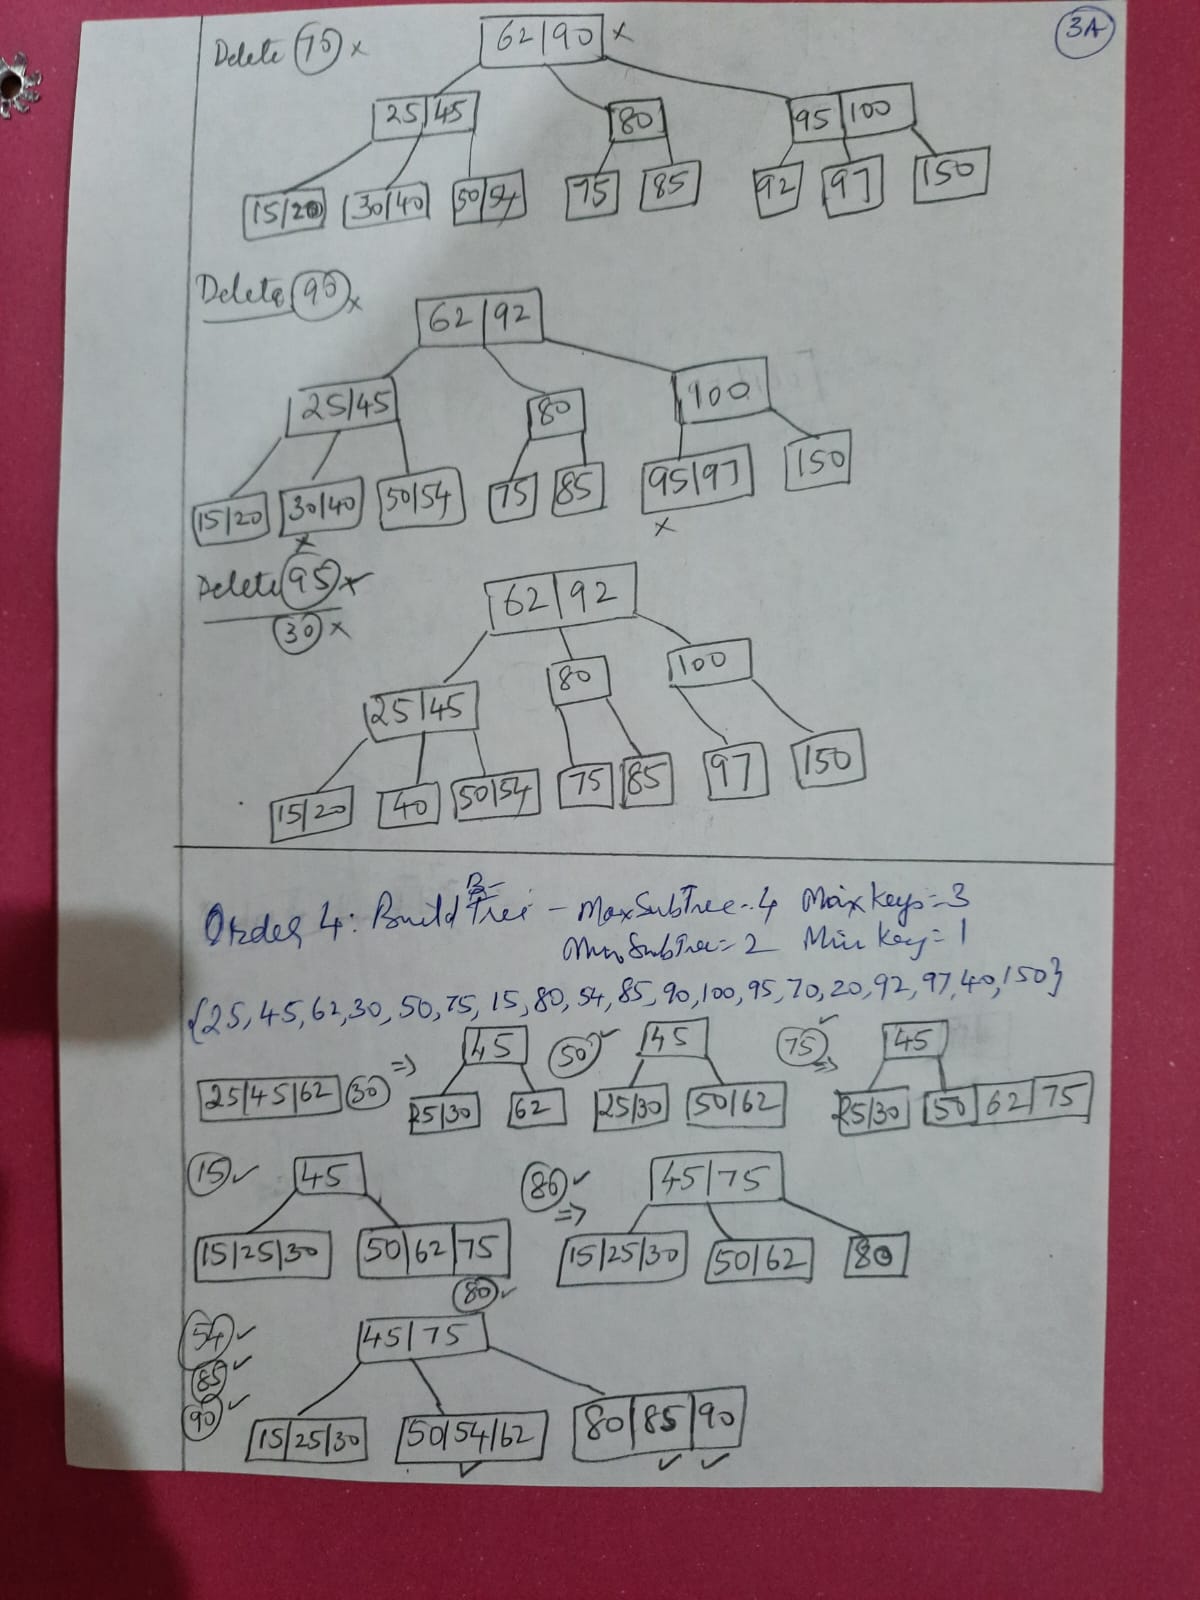 3A
Delete 70 x
62|90 x
25|45 80 95|100
15|20 30|40 50|54 75 85 92 97 150
Delete 90 x
62|92
25|45 80 100
15|20 30|40 50|54 75 85 95|97 150
x x
Delete 95 x
30 x
62|92
25|45 80 100
15|20 40 50|54 75 85 97 150
Order 4: Build B-Tree - Max SubTree-4 Max Keys=3
Min SubTree=2 Min Key=1
{25, 45, 62, 30, 50, 75, 15, 80, 54, 85, 90, 100, 95, 70, 20, 92, 97, 40, 150}
25|45|62 30 ⇒ 45 50 ✓ 45 75 ✓ ⇒ 45
25|30 62 25|30 50|62 25|30 50|62|75
15 ✓ 45 80 ✓ ⇒ 45|75
15|25|30 50|62|75 15|25|30 50|62 80
80 ✓
54 ✓ 45|75
85 ✓
90 ✓
15|25|30 50|54|62 80|85|90
✓ ✓ ✓